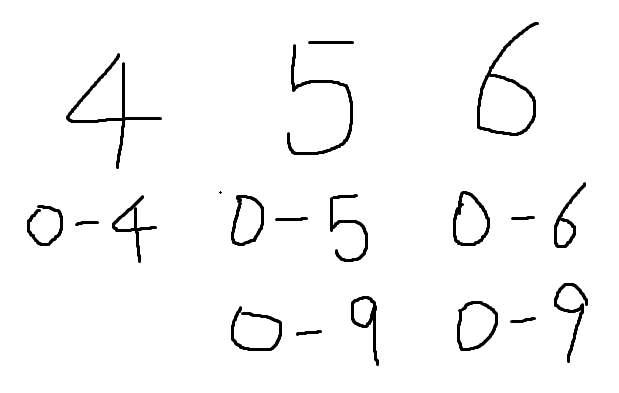 4 5 6
0-4 0-5 0-6
0-9 0-9